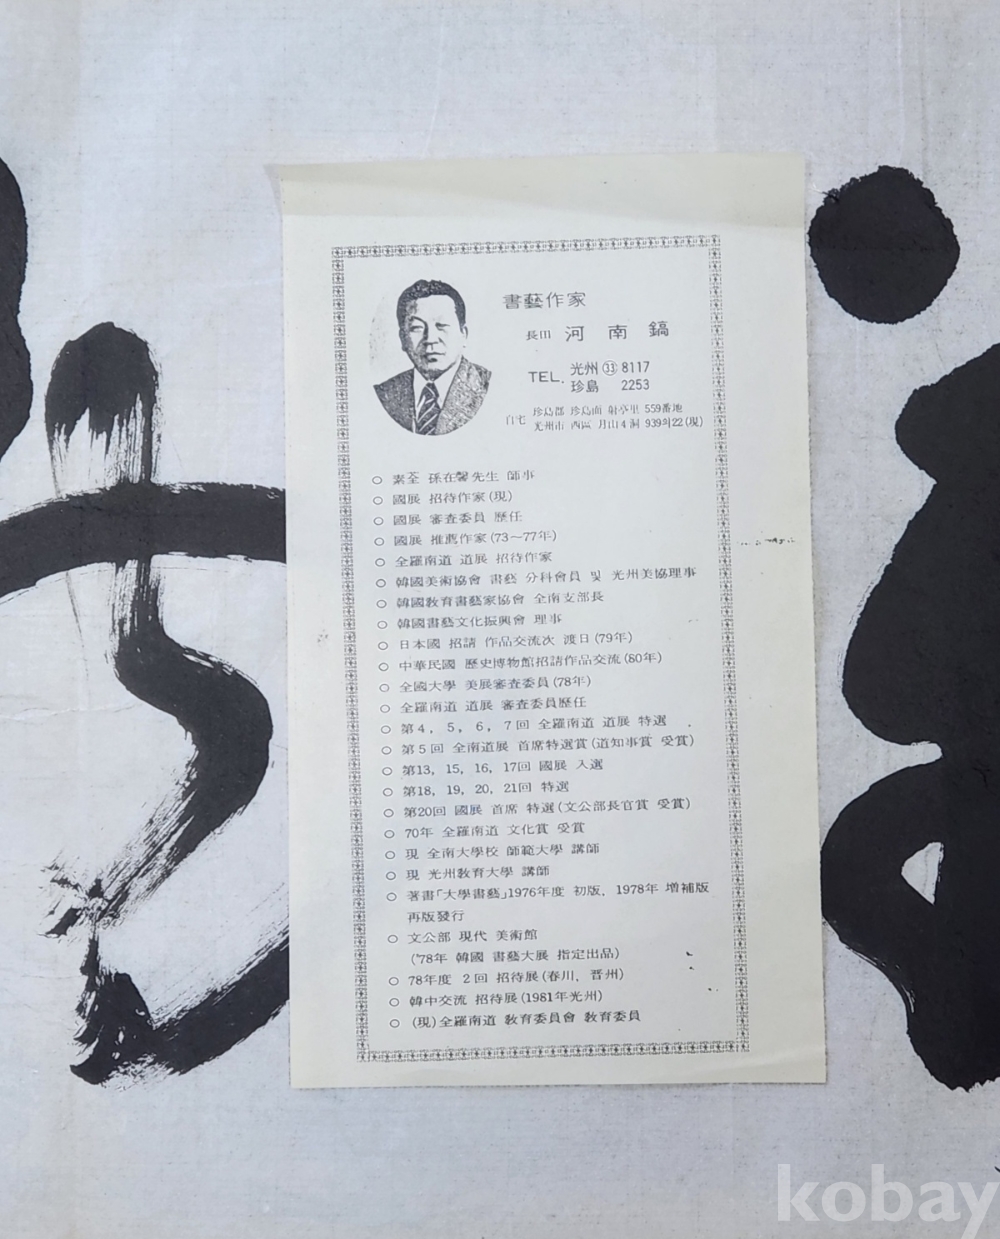 書藝作家
長田 河南鎬
TEL. 光州 ㉝ 8117
珍島 2253
自宅 珍島郡 珍島面 射亭里 559番地
光州市 西區 月山4洞 939의22(現)
○ 素荃 孫在馨先生 師事
○ 國展 招待作家(現)
○ 國展 審査委員 歷任
○ 國展 推薦作家(73~77年)
○ 全羅南道 道展 招待作家
○ 韓國美術協會 書藝 分科會員 및 光州美協理事
○ 韓國敎育書藝家協會 全南支部長
○ 韓國書藝文化振興會 理事
○ 日本國 招請 作品交流次 渡日(79年)
○ 中華民國 歷史博物館招請作品交流(80年)
○ 全國大學 美展審査委員(78年)
○ 全羅南道 道展 審査委員歷任
○ 第4, 5, 6, 7回 全羅南道 道展 特選
○ 第5回 全南道展 首席特選賞(道知事賞 受賞)
○ 第13, 15, 16, 17回 國展 入選
○ 第18, 19, 20, 21回 特選
○ 第20回 國展 首席 特選(文公部長官賞 受賞)
○ 70年 全羅南道 文化賞 受賞
○ 現 全南大學校 師範大學 講師
○ 現 光州敎育大學 講師
○ 著書「大學書藝」1976年度 初版, 1978年 增補版
再版發行
○ 文公部 現代 美術館
('78年 韓國 書藝大展 指定出品)
○ 78年度 2回 招待展(春川, 晋州)
○ 韓中交流 招待展(1981年光州)
○ (現)全羅南道 敎育委員會 敎育委員
kobay